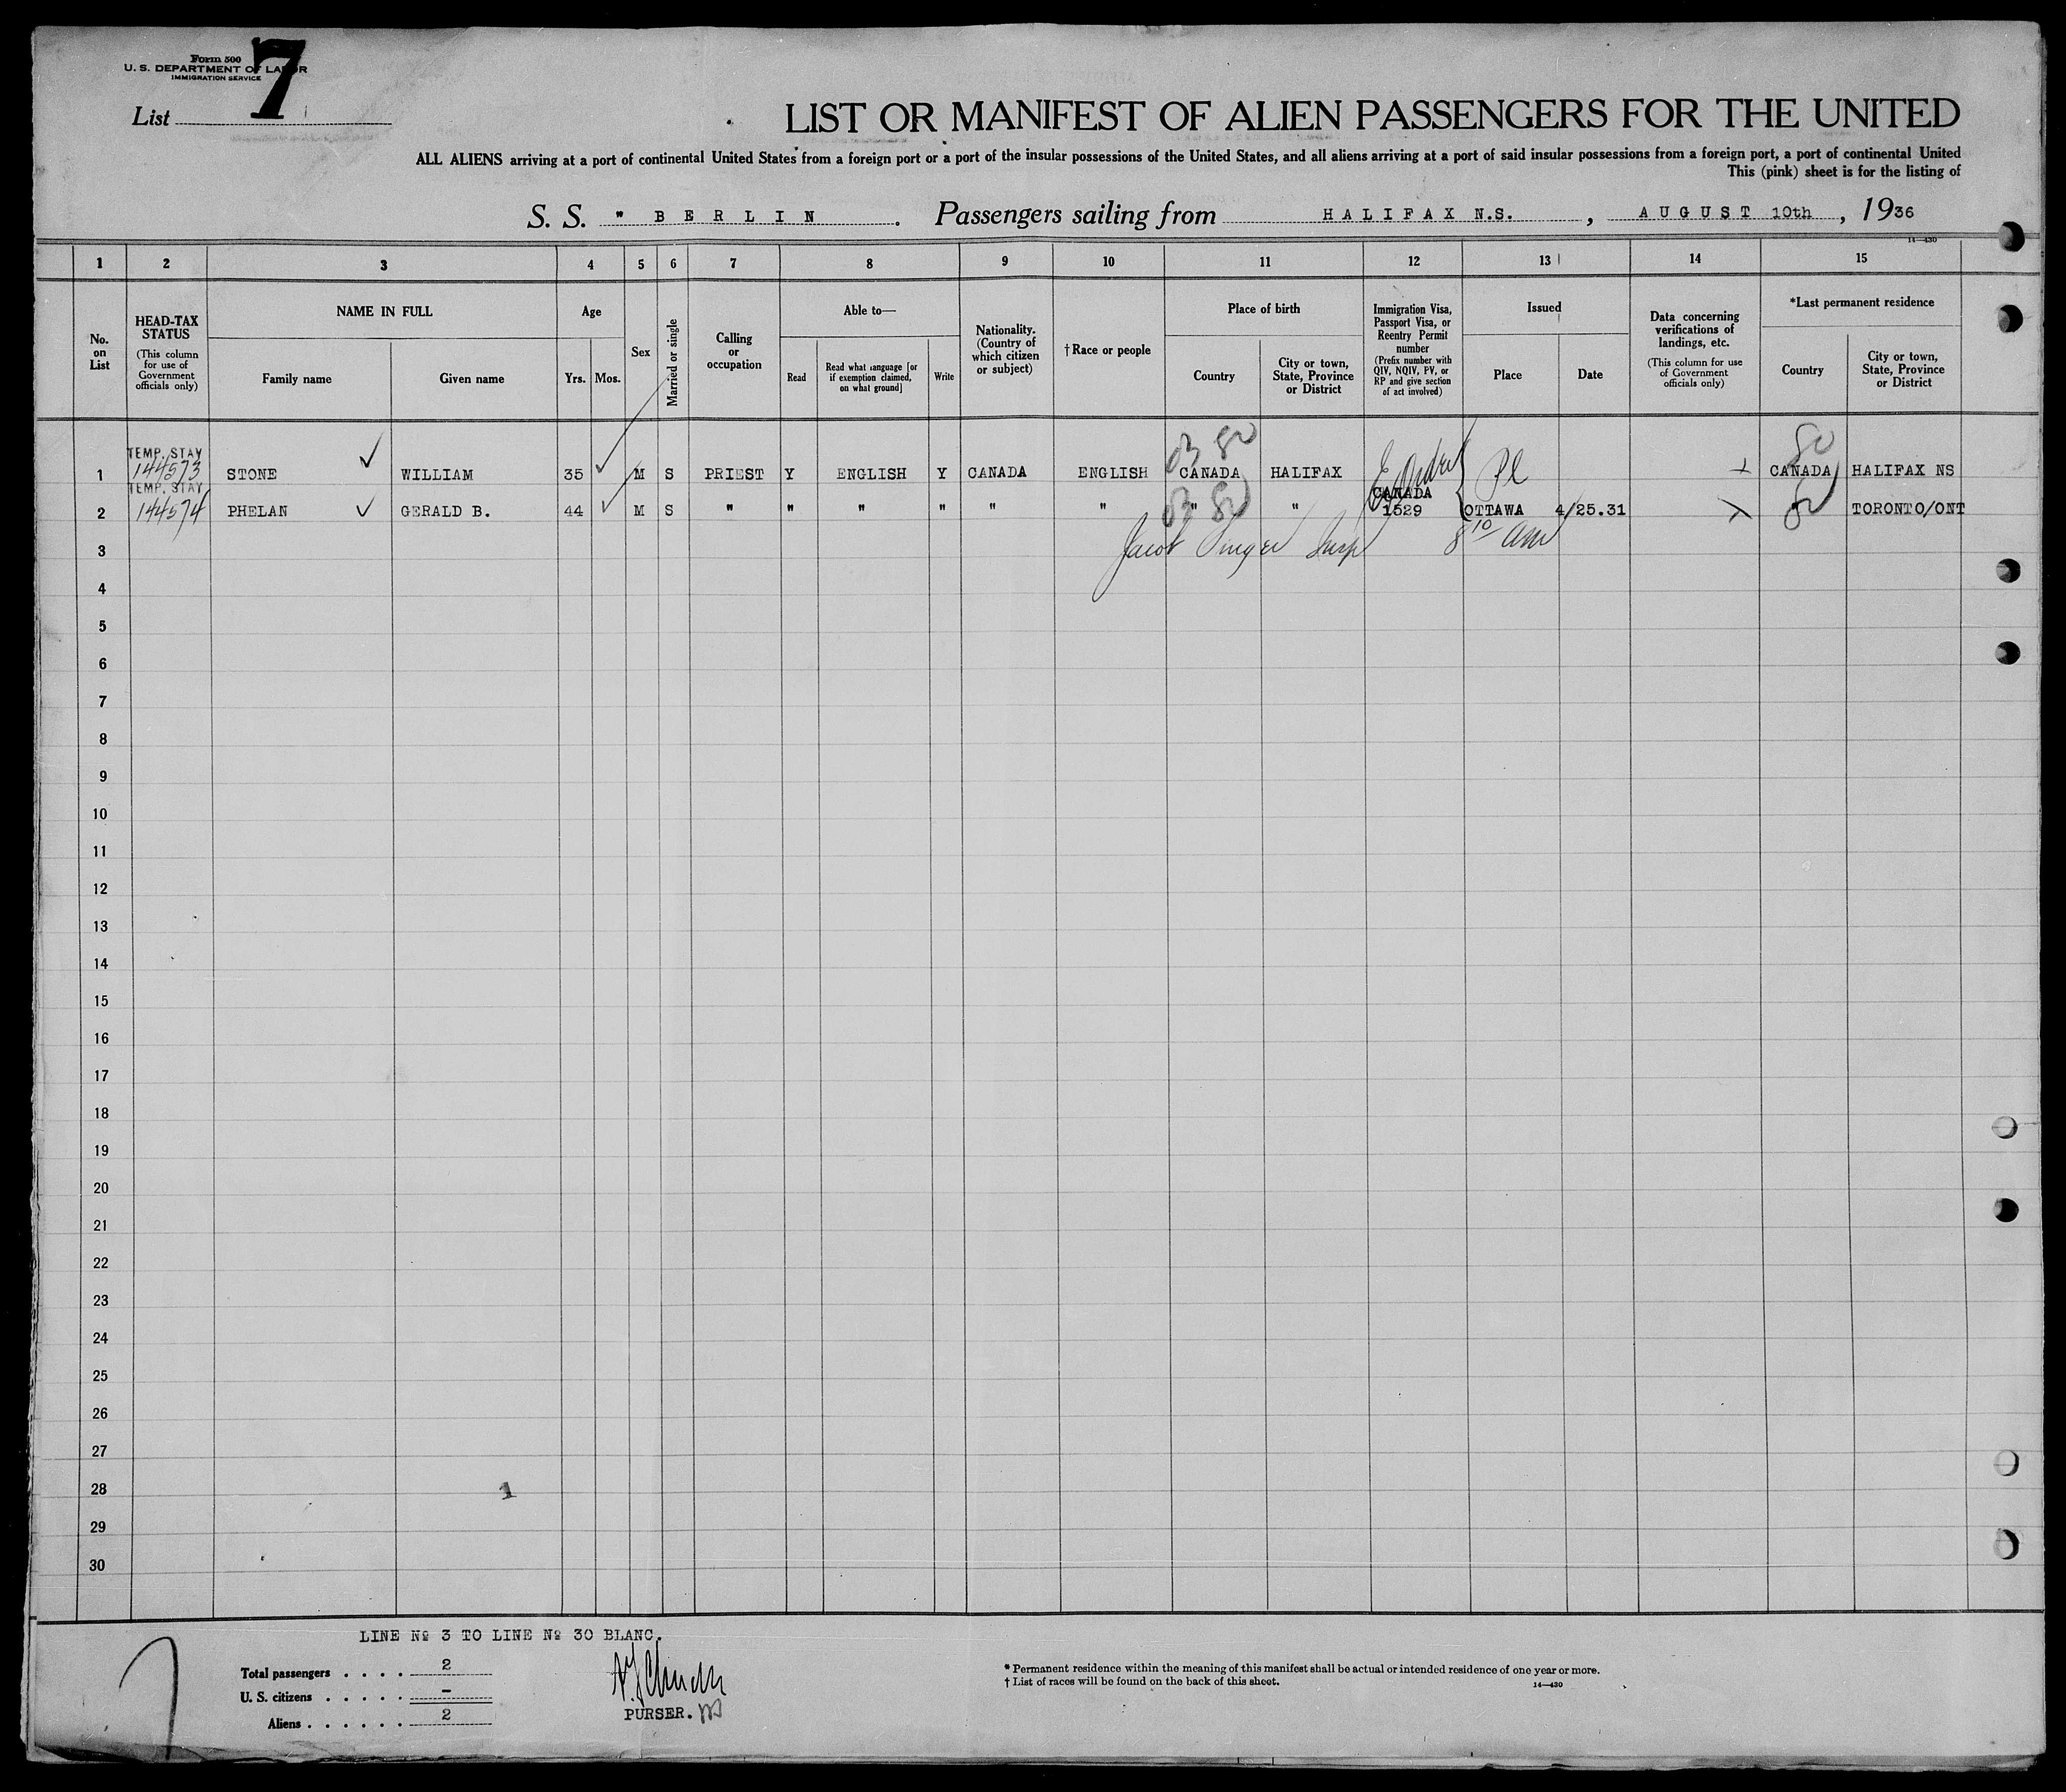 Form 500
U. S. DEPARTMENT OF LABOR
IMMIGRATION SERVICE
List 7
LIST OR MANIFEST OF ALIEN PASSENGERS FOR THE UNITED
ALL ALIENS arriving at a port of continental United States from a foreign port or a port of the insular possessions of the United States, and all aliens arriving at a port of said insular possessions from a foreign port, a port of continental United
This (pink) sheet is for the listing of
S. S. " BERLIN . Passengers sailing from HALIFAX N.S. , AUGUST 10th , 1936
14—430
1 2 3 4 5 6 7 8 9 10 11 12 13 14 15
No. on List
HEAD-TAX STATUS (This column for use of Government officials only)
NAME IN FULL
Family name
Given name
Age
Yrs. Mos.
Sex
Married or single
Calling or occupation
Able to—
Read
Read what language [or if exemption claimed, on what ground]
Write
Nationality. (Country of which citizen or subject)
† Race or people
Place of birth
Country
City or town, State, Province or District
Immigration Visa, Passport Visa, or Reentry Permit number (Prefix number with QIV, NQIV, PV, or RP and give section of act involved)
Issued
Place
Date
Data concerning verifications of landings, etc. (This column for use of Government officials only)
*Last permanent residence
Country
City or town, State, Province or District
TEMP. STAY 03 80 80
1 144573 STONE ✓ WILLIAM 35 ✓ M S PRIEST Y ENGLISH Y CANADA ENGLISH CANADA HALIFAX CANADA HALIFAX NS
TEMP. STAY 03 80 CANADA 80
2 144574 PHELAN ✓ GERALD B. 44 ✓ M S " " " " " " " " 1529 OTTAWA 4/25.31 " TORONTO/ONT
Jacob Insp 8 10 am
3
4
5
6
7
8
9
10
11
12
13
14
15
16
17
18
19
20
21
22
23
24
25
26
27
28
29
30
1
LINE № 3 TO LINE № 30 BLANC.
Total passengers . . . . 2
U. S. citizens . . . . . –
Aliens . . . . . . 2
PURSER.
* Permanent residence within the meaning of this manifest shall be actual or intended residence of one year or more.
† List of races will be found on the back of this sheet.
14—430